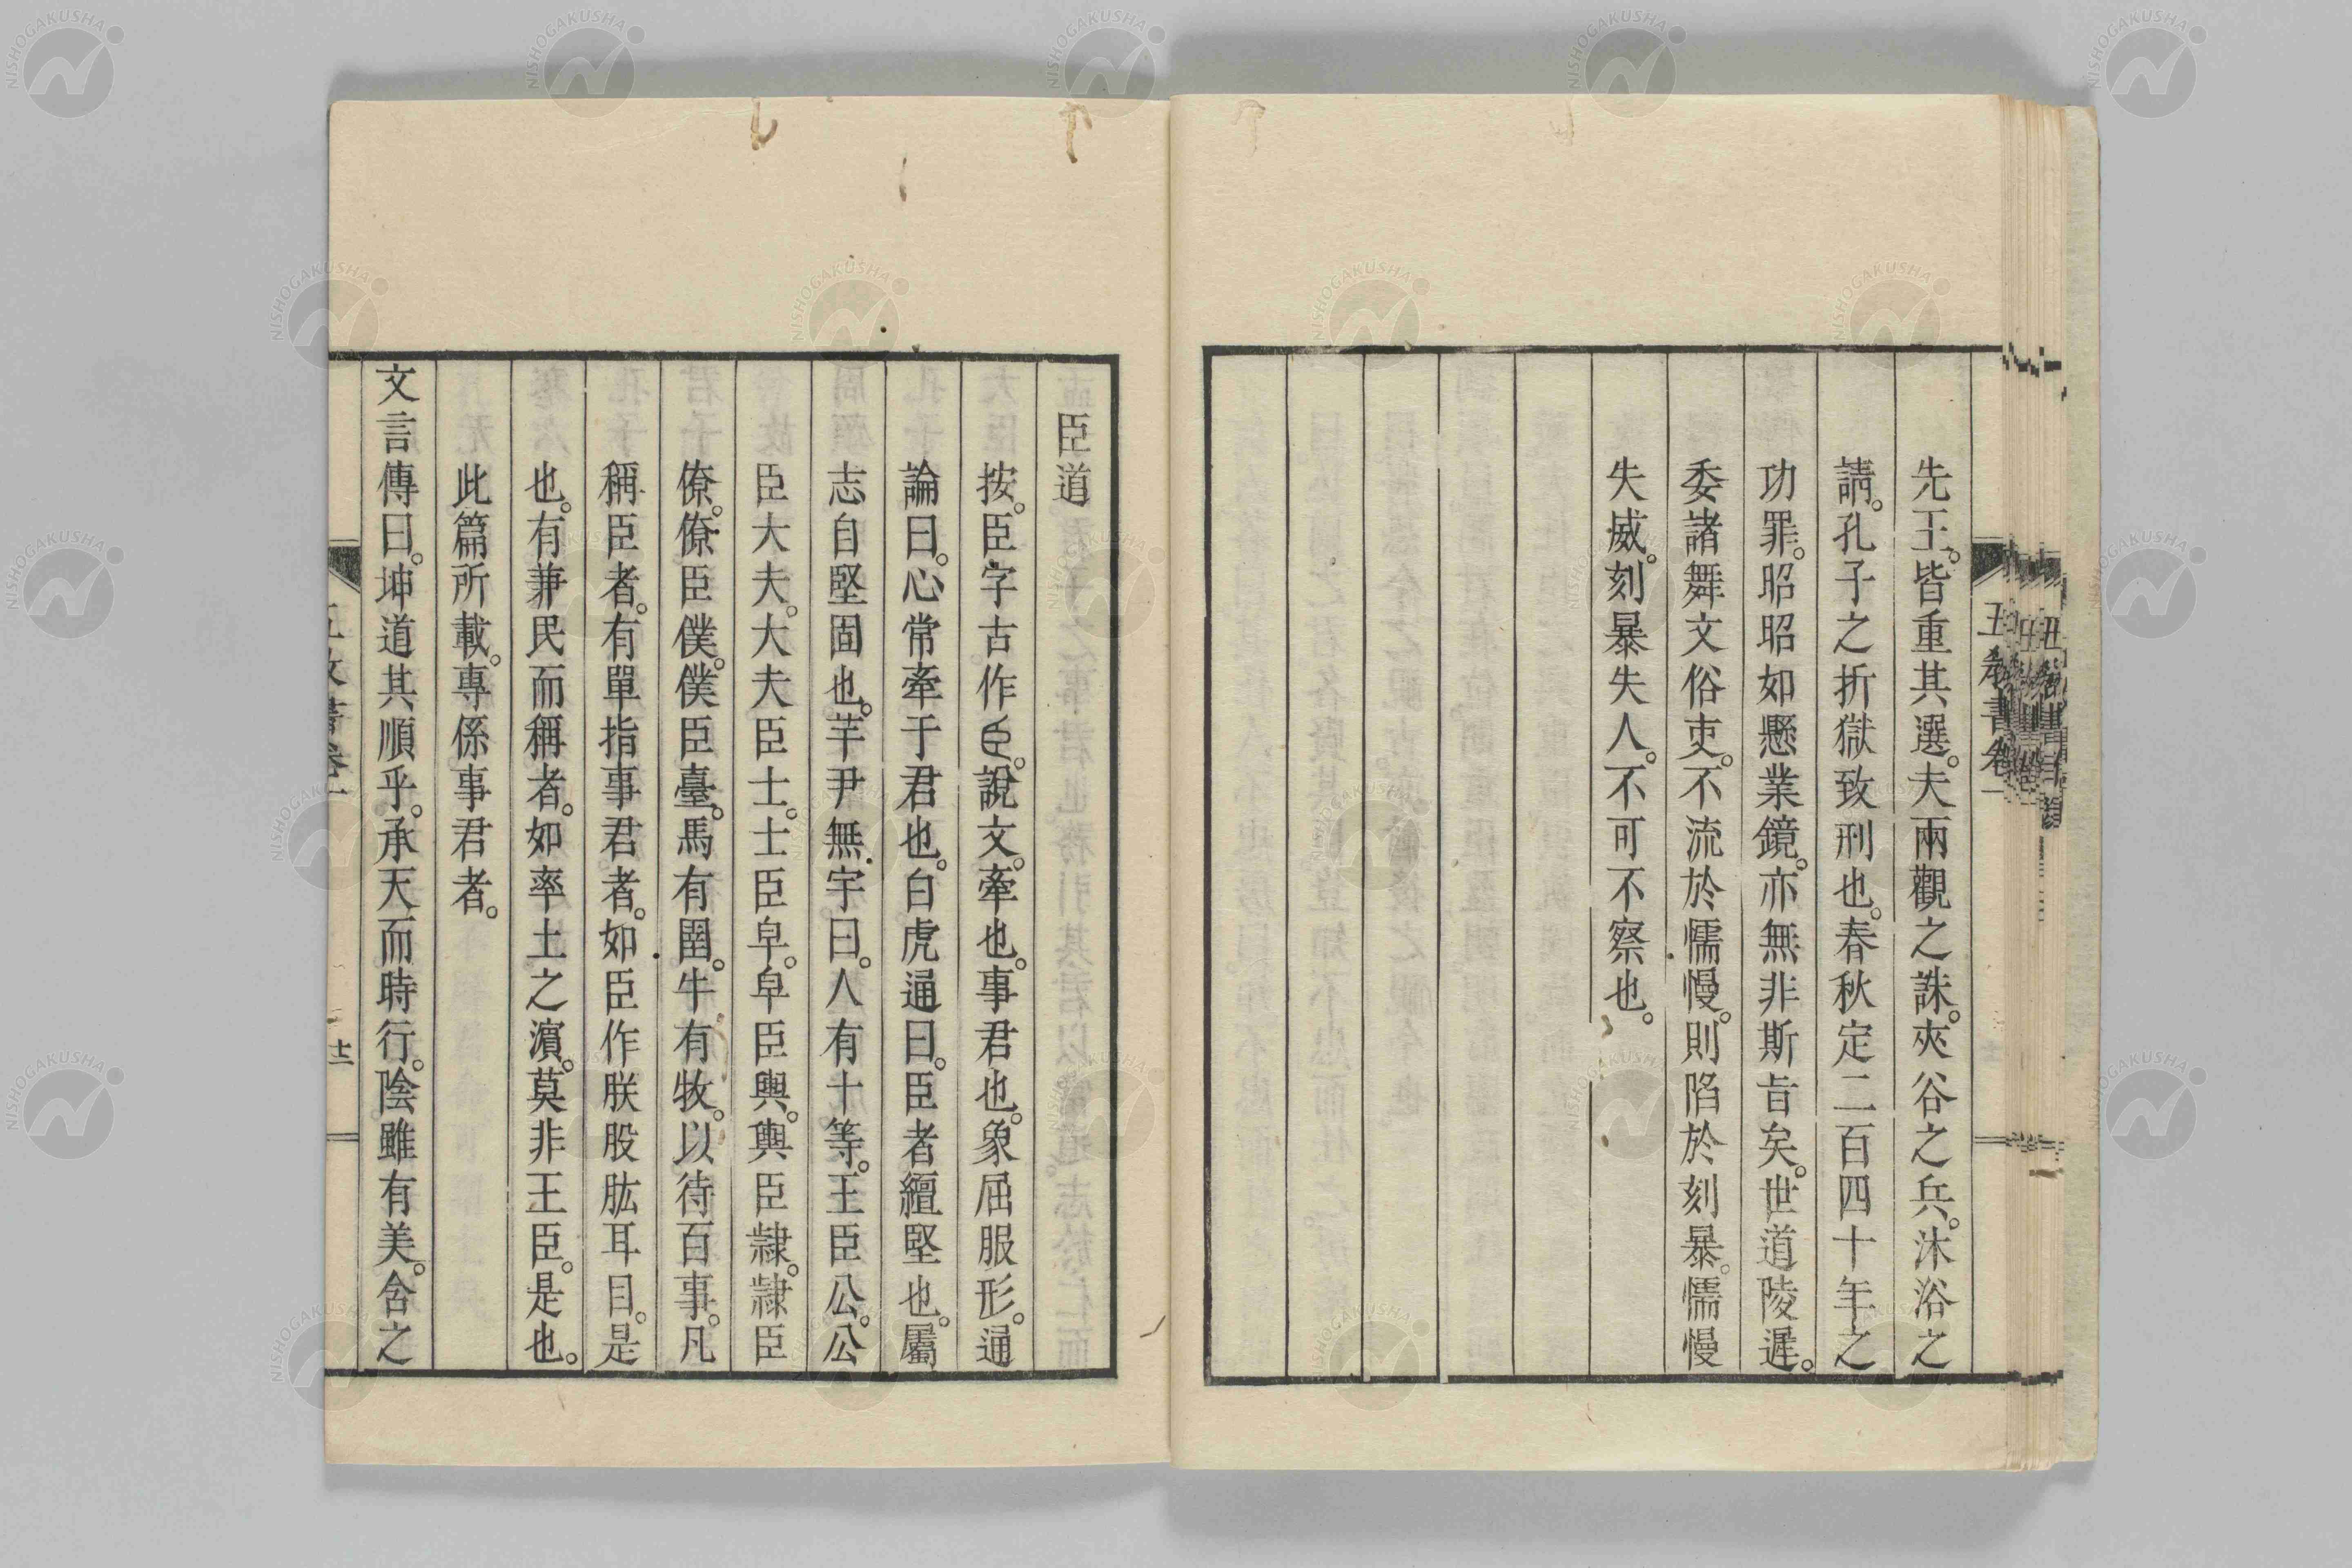 先王。皆重其選。夫兩觀之誅。夾谷之兵。沐浴之
請。孔子之折獄致刑也。春秋定二百四十年之
功罪。昭昭如懸業鏡。亦無非斯旨矣。世道陵遲。
委諸舞文俗吏。不流於懦慢。則陷於刻暴。懦慢
失威。刻暴失人。不可不察也。
臣道
按。臣字古作𦣠。說文。牽也。事君也。象屈服形。通
論曰。心常牽于君也。白虎通曰。臣者纏堅也。屬
志自堅固也。芋尹無宇曰。人有十等。王臣公。公
臣大夫。大夫臣士。士臣皁。皁臣輿。輿臣隸。隸臣
僚。僚臣僕。僕臣臺。馬有圉。牛有牧。以待百事。凡
稱臣者。有單指事君者。如臣作朕股肱耳目。是
也。有兼民而稱者。如率土之濱。莫非王臣。是也。
此篇所載。專係事君者。
文言傳曰。坤道其順乎。承天而時行。陰雖有美。含之
NISHOGAKUSHA